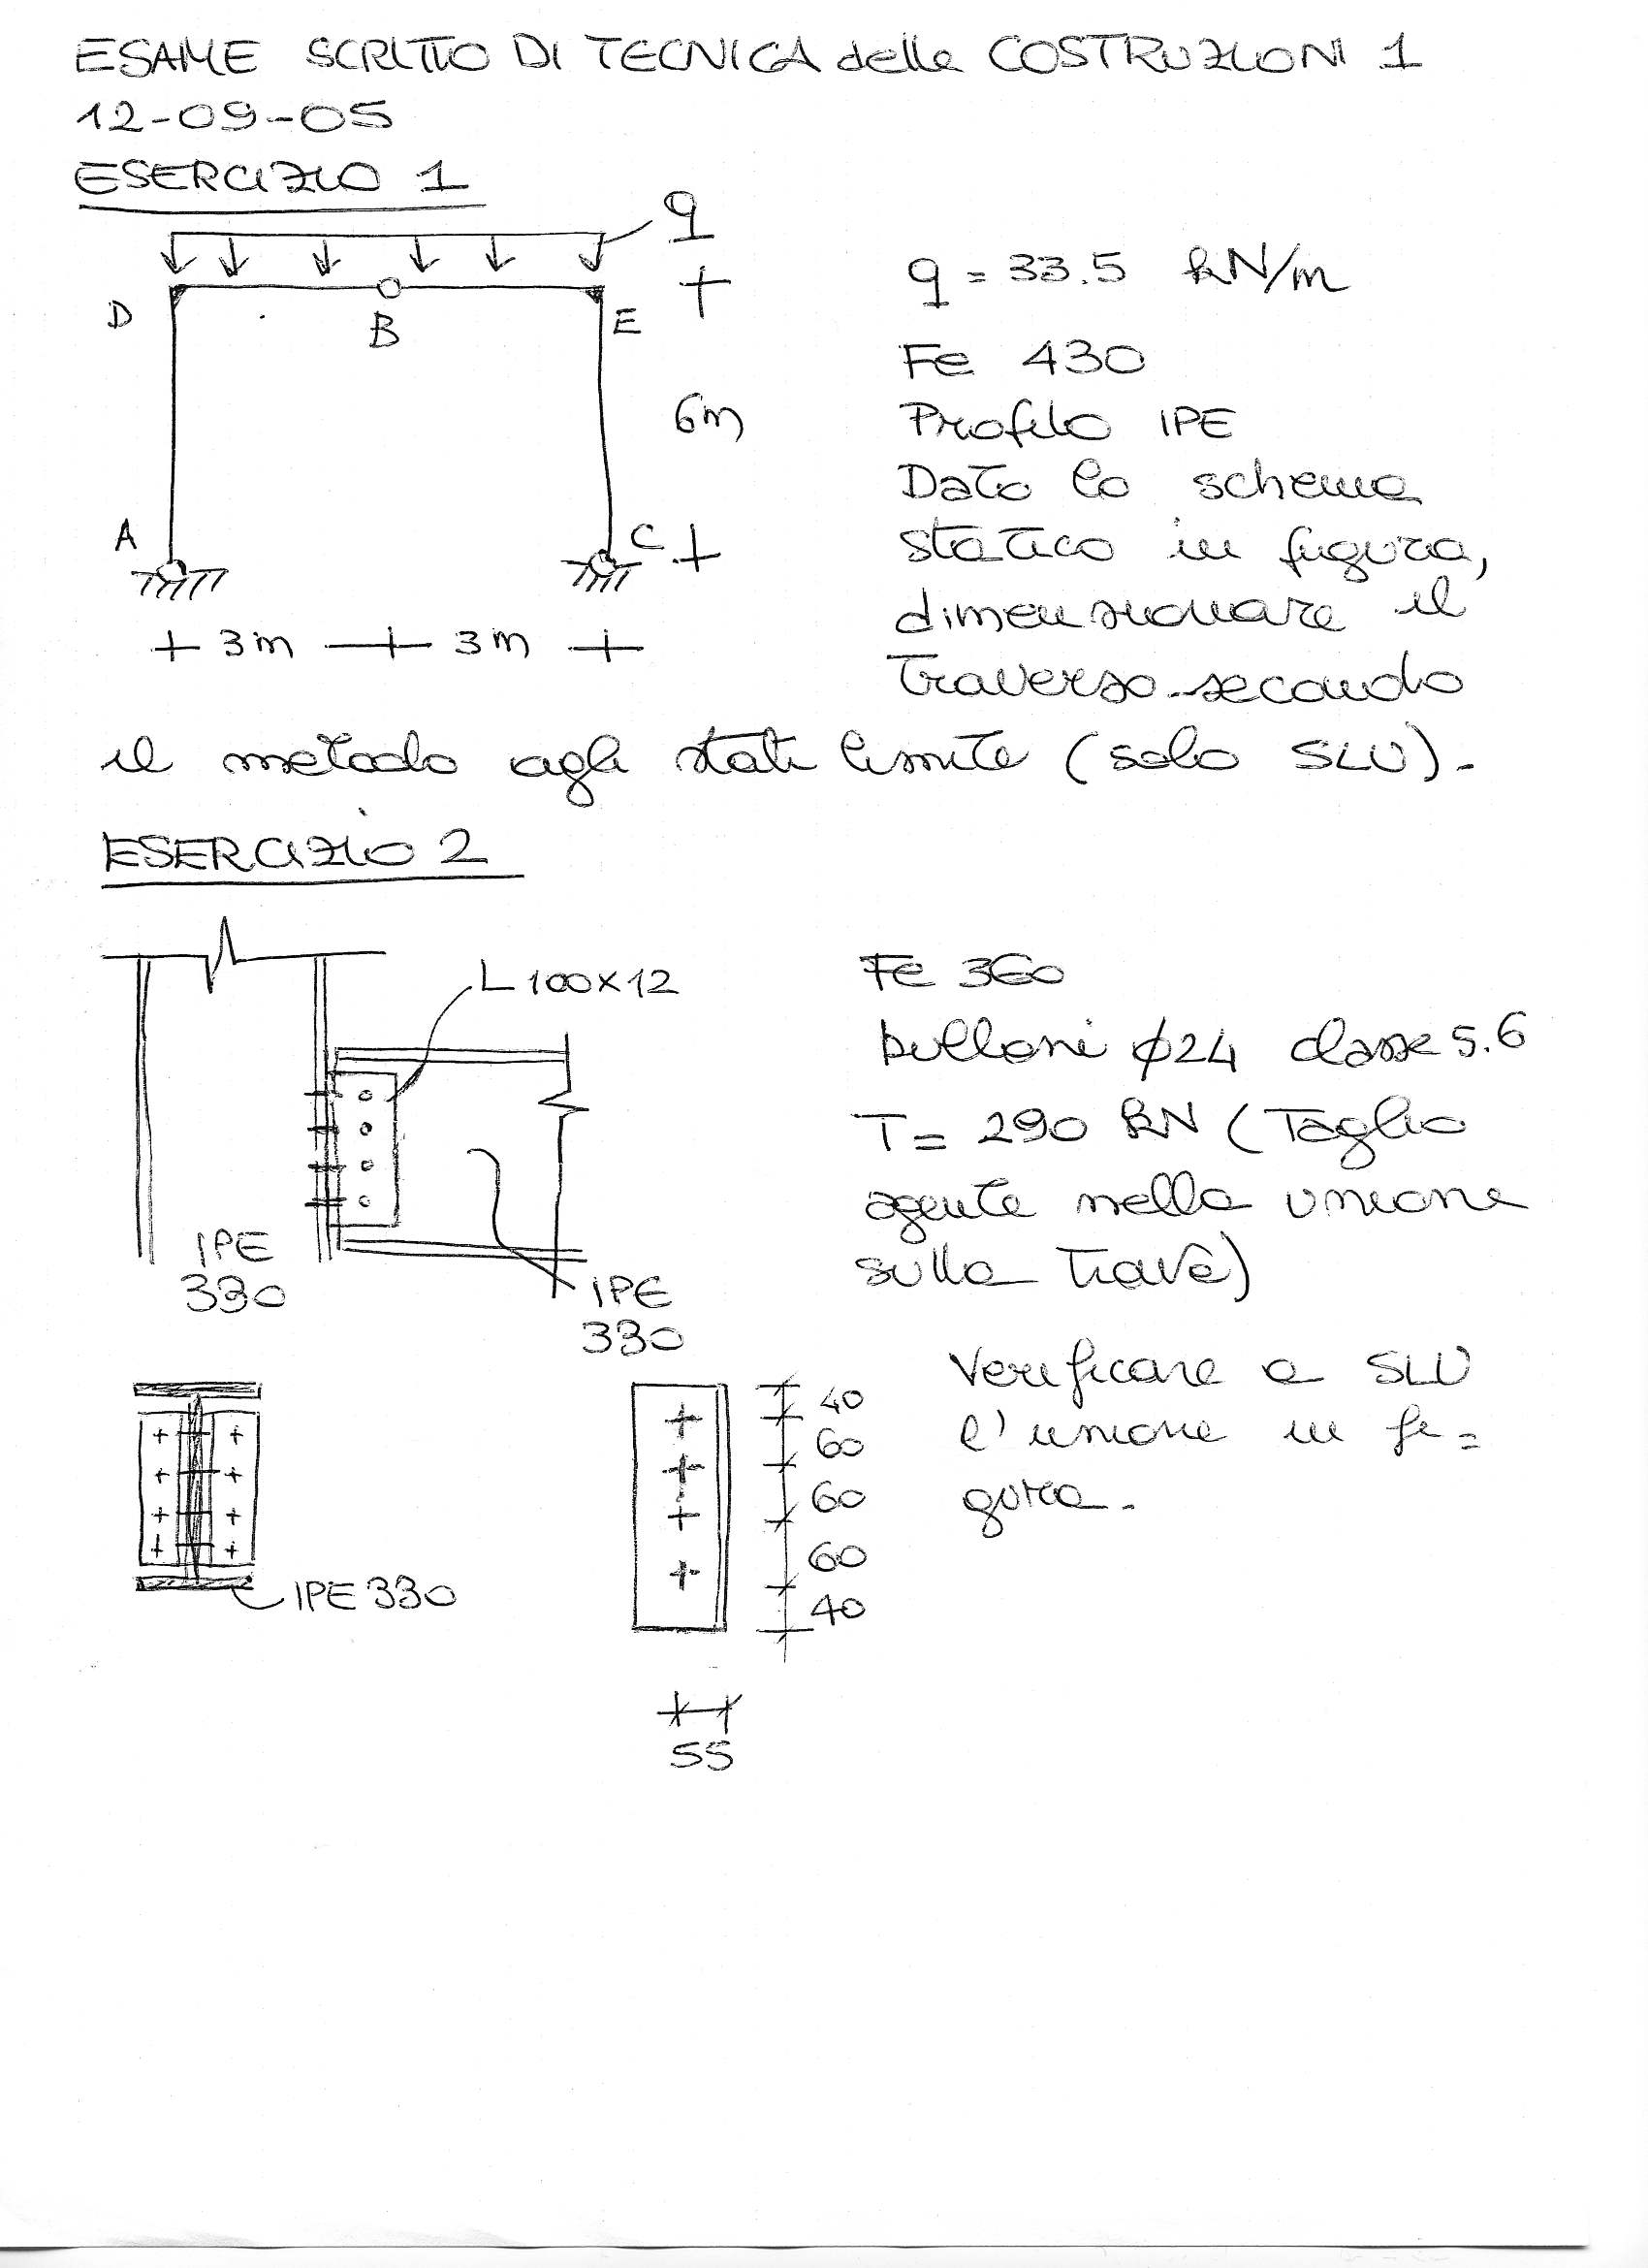 ESAME SCRITTO DI TECNICA delle COSTRUZIONI 1
12-09-05
ESERCIZIO 1
q
D
B
E
6m
A
C
3m 3m
q = 33.5 kN/m
Fe 430
Profilo IPE
Dato lo schema
statico in figura,
dimensionare il
traverso secondo
il metodo agli stati limite (solo SLU).
ESERCIZIO 2
L 100x12
IPE
330
IPE
330
Fe 360
bulloni ϕ24 classe 5.6
T= 290 kN (Taglio
agente nella unione
sulla trave)
Verificare a SLU
l'unione in fi=
gura.
IPE 330
40
60
60
60
40
55